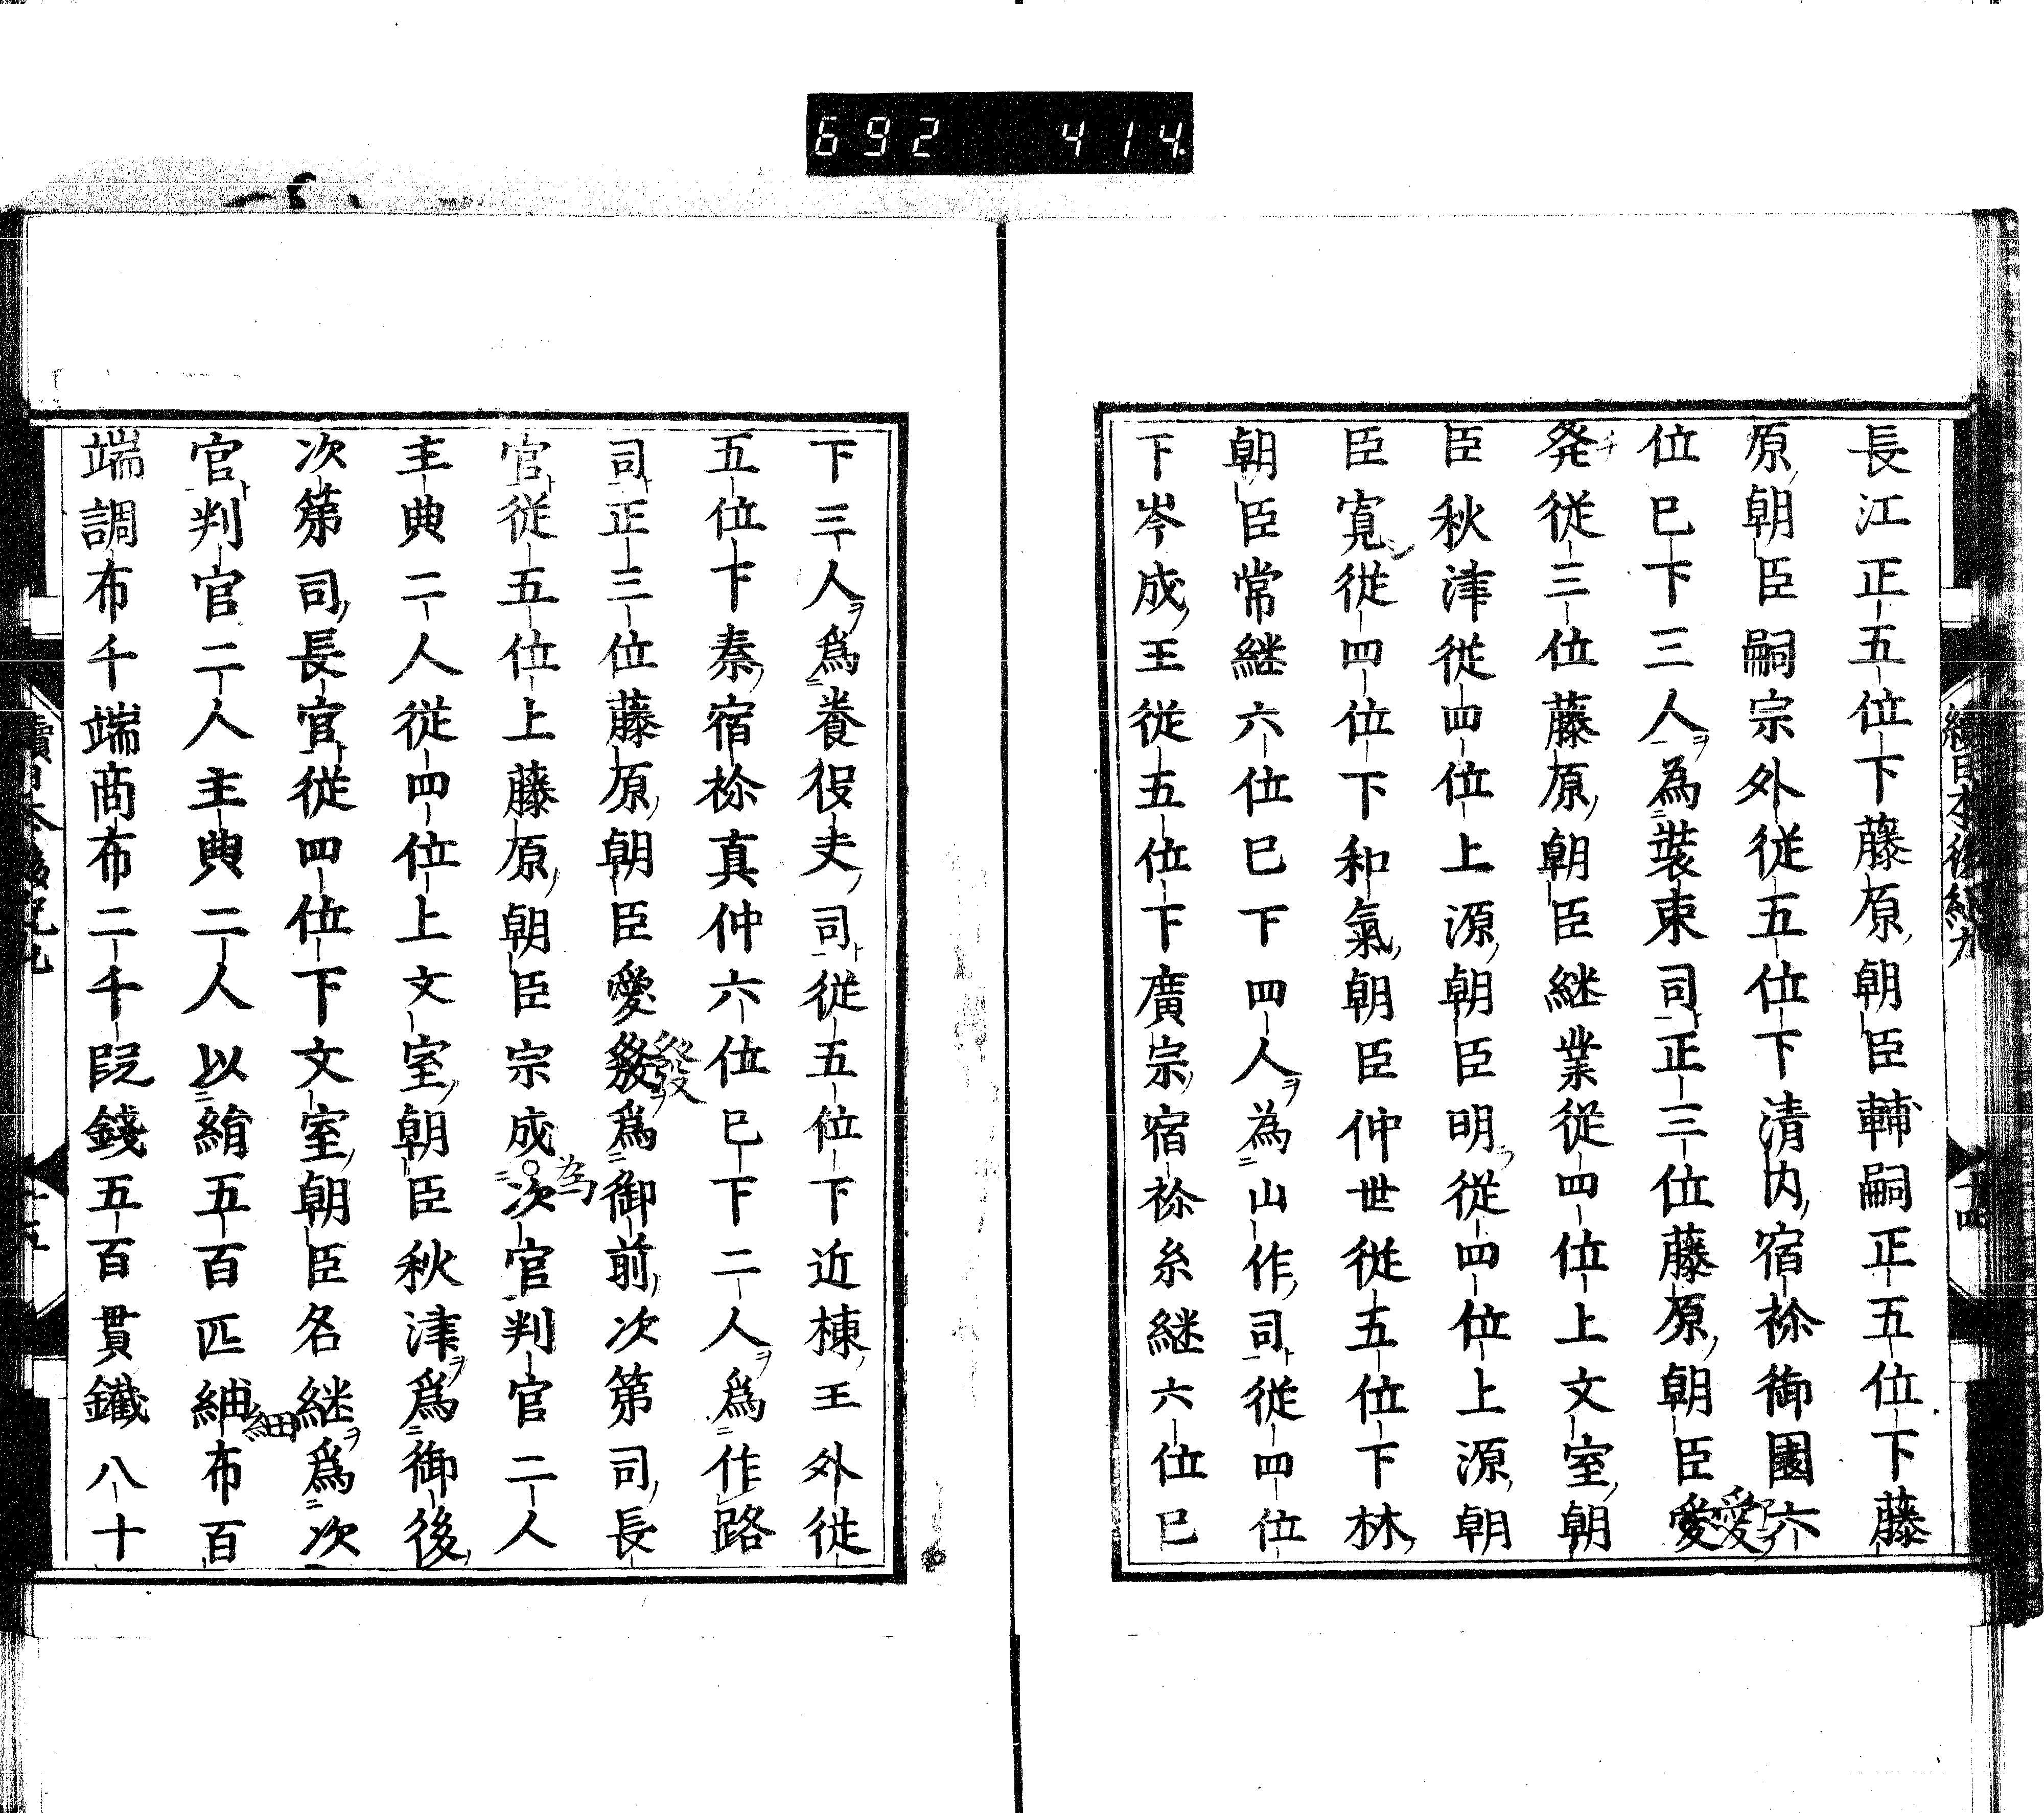 692 414
長江正五位下藤原朝臣輔嗣正五位下藤
原朝臣嗣宗外従五位下清内宿祢御園六
位已下三人為装束司正三位藤原朝臣愛
愛
発従三位藤原朝臣継業従四位上文室朝
臣秋津従四位上源朝臣明従四位上源朝
臣寛従四位下和氣朝臣仲世従五位下林
朝臣常継六位已下四人為山作司従四位
下岑成王従五位下廣宗宿祢糸継六位已
續日本後紀九
十四
下三人爲養役夫司従五位下近棟王外従
五位下秦宿祢真仲六位已下二人爲作路
司正三位藤原朝臣愛發爲御前次第司長
發
官従五位上藤原朝臣宗成次官判官二人
為
主典二人従四位上文室朝臣秋津爲御後
次第司長官従四位下文室朝臣名継爲次
官判官二人主典二人以絹五百匹紬布百
細
端調布千端商布二千段錢五百貫鐵八十
續日本後紀九
十五